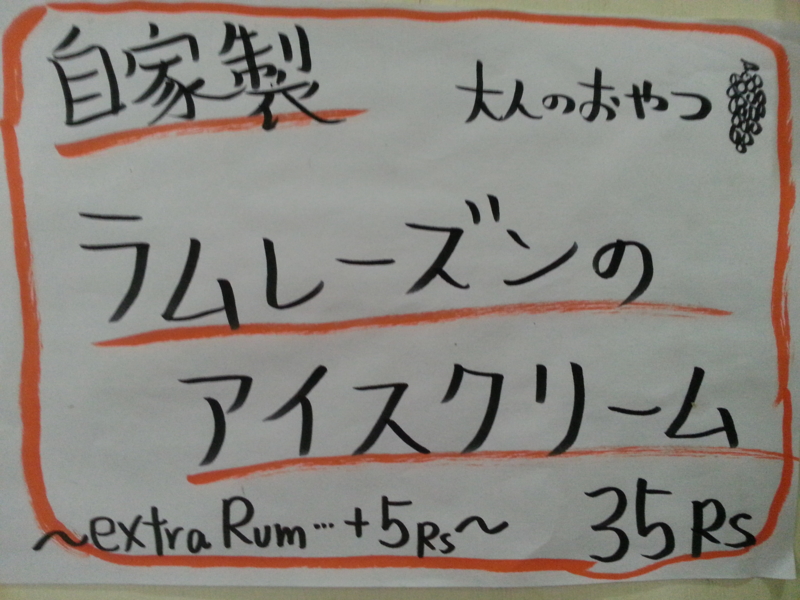 自家製 大人のおやつ
ラムレーズンの
アイスクリーム
〜extra Rum…+5Rs〜 35Rs